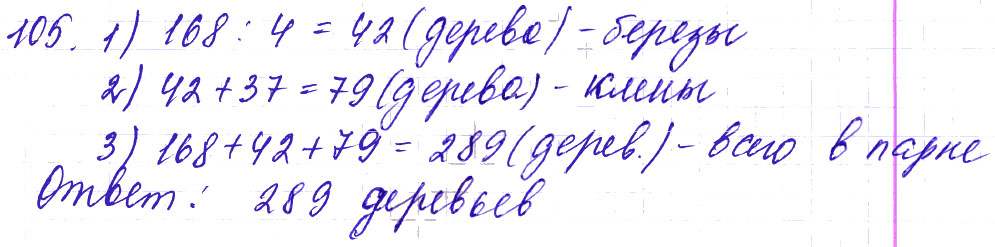 105. 1) 168 : 4 = 42 (дерева) - березы
2) 42 + 37 = 79 (дерева) - клены
3) 168 + 42 + 79 = 289 (дерев.) - всего в парке
Ответ: 289 деревьев